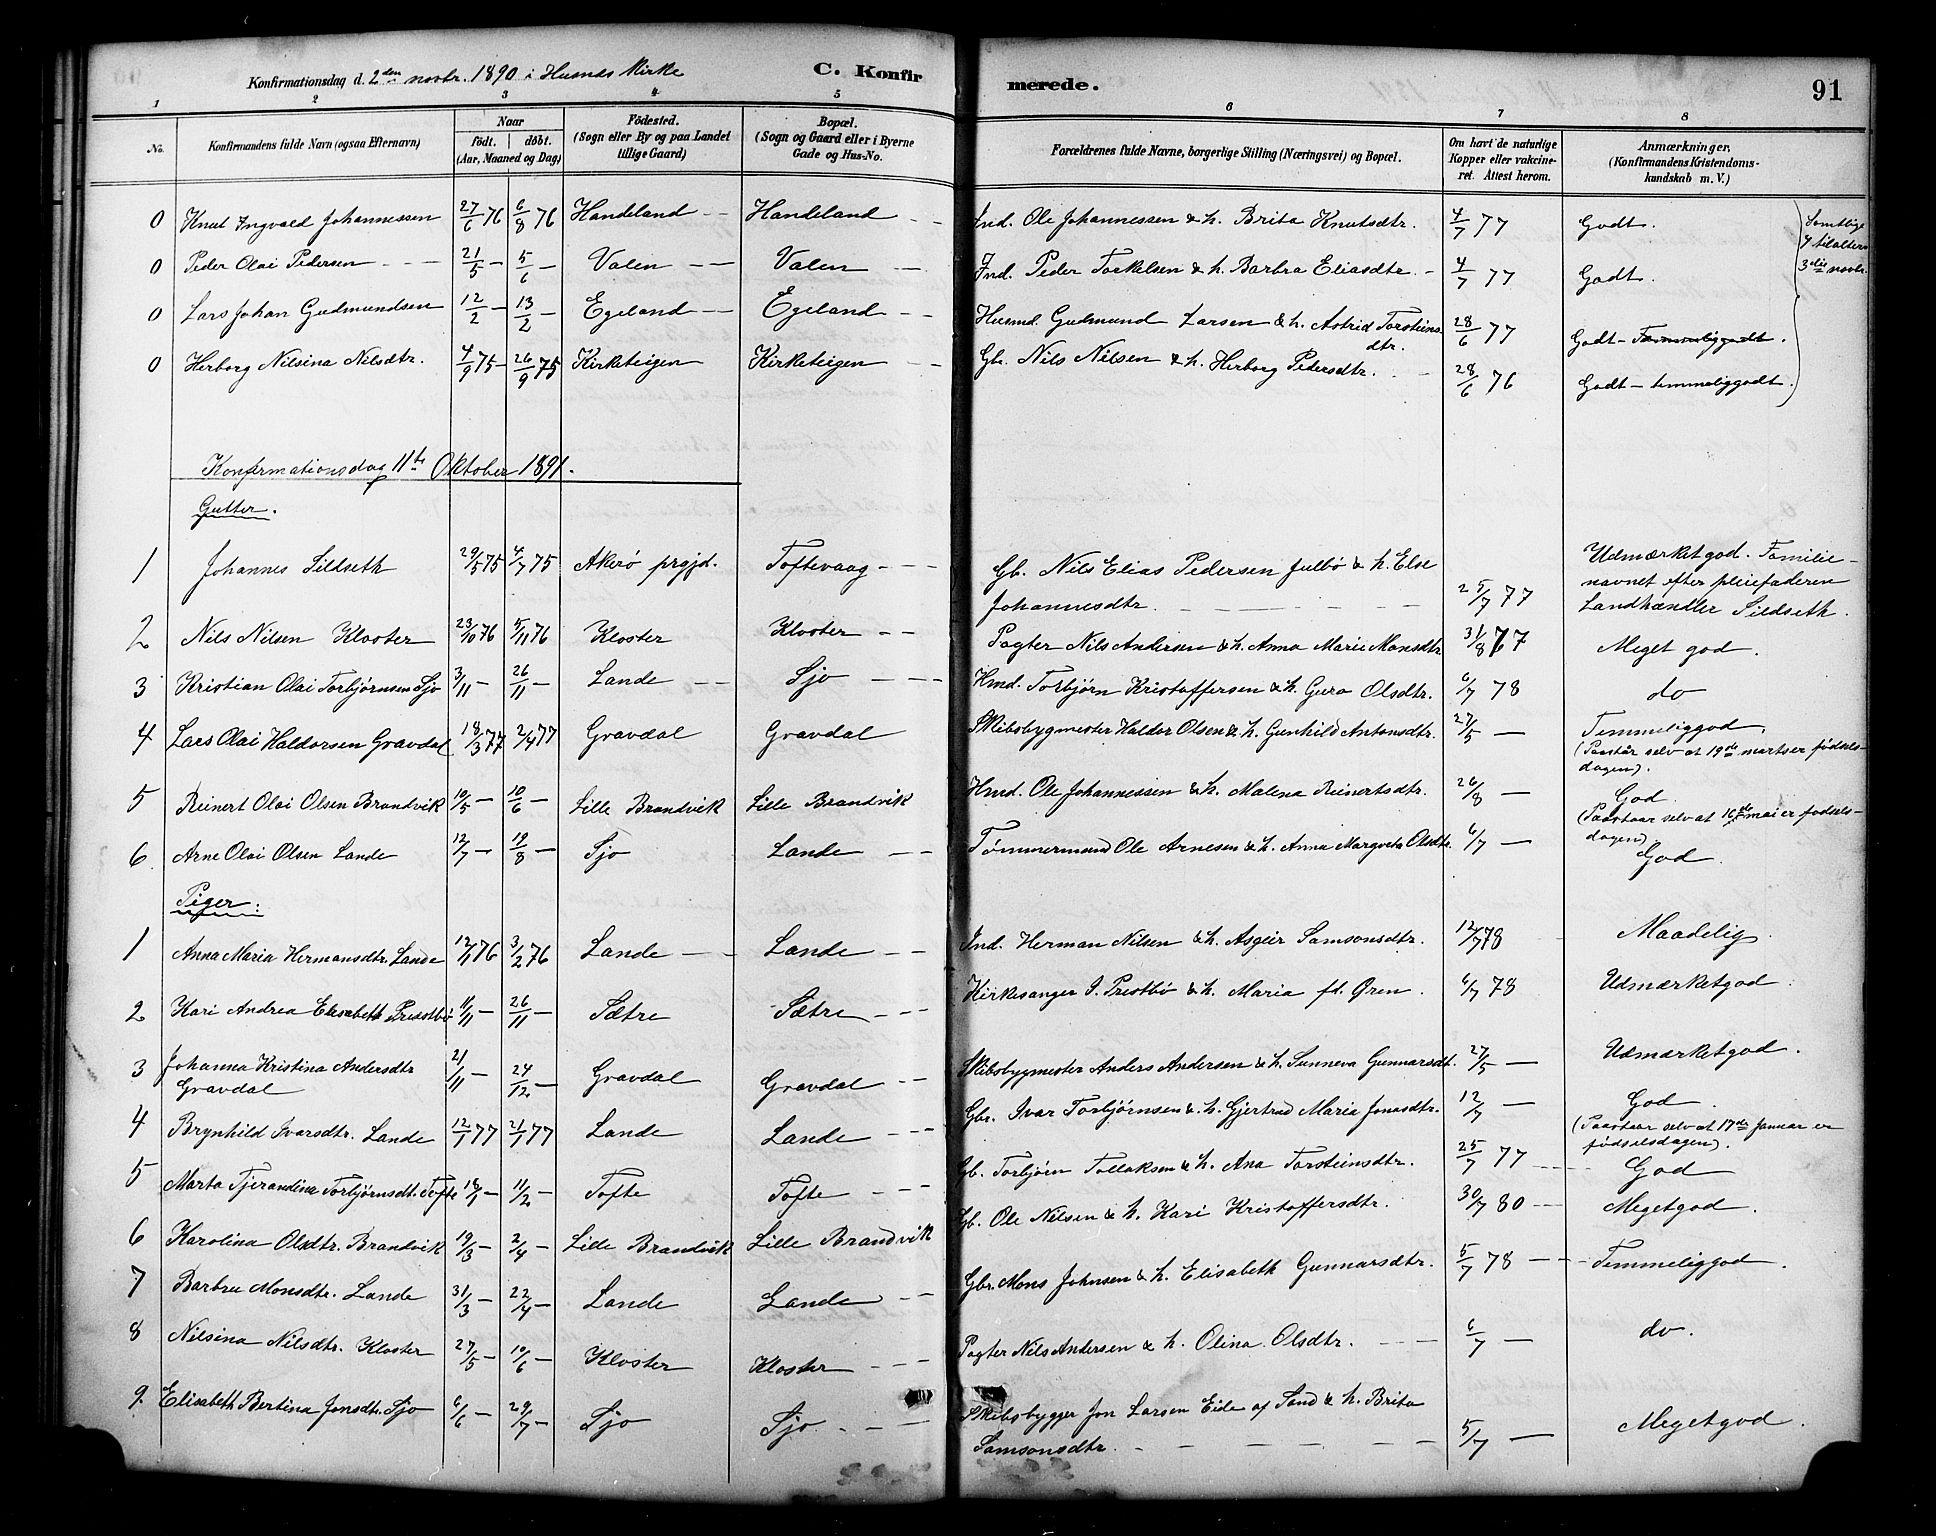 Konfirmationsdag d. 2den novbr. 1890 i Husnæs Kirke C. Konfirmerede. 91
1 2 3 4 5 6 7 8
No. Konfirmandens fulde Navn (ogsaa Efternavn) Naar födt. döbt. (Aar, Maaned og Dag) Födested. (Sogn eller By og paa Landet tillige Gaard) Bopæl. (Sogn og Gaard eller i Byerne Gade og Hus-No. Forældrenes fulde Navne, borgerlige Stilling (Næringsvei) og Bopæl. Om havt de naturlige Kopper eller vakcineret. Attest herom. Anmærkninger. (Konfirmandens Kristendomskundskab m. V.)
0 Knut Ingvald Johannessen 27/6 76 6/8 76 Handeland Handeland Ind. Ole Johannessen & h. Brita Knutsdtr. 4/7 77 Godt.
Samtlige 4 tilalters 3die novbr.
0 Peder Olai Pedersen 21/5 – 5/6 – Valen Valen Ind. Peder Torkelsen & h. Barbra Eliasdtr. 4/7 77 Godt.
0 Lars Johan Gudmundsen 12/2 – 13/2 – Egeland Egeland Husmd. Gudmund Larsen & h. Astrid Torsteinsdtr. 28/6 77 Godt – Temmeliggodt.
0 Herborg Nilsina Nilsdtr. 4/9 75 – 26/9 75 Kirketeigen Kirketeigen Gbr. Nils Nilsen & h. Herborg Pedersdtr. 28/6 76 Godt – temmeliggodt.
Konfirmationsdag 11te Oktober 1891.
Gutter.
1 Johannes Sildseth 29/5 75 4/7 75 Akerö prgjd. Toftevaag Gb. Nils Elias Pedersen Julbö & h. Else Johannesdtr. 25/7 77 Udmærketgod. Familienavnet efter pleiefaderen Landhandler Sildseth.
2 Nils Nilsen Kloster 23/10 76 5/11 76 Kloster Kloster Pagter Nils Andersen & h. Anna Marie Monsdtr 31/8 77 Meget god.
3 Kristian Olai Torbjørnsen Sjo 3/11 – 26/11 – Lande Sjo Hmd. Torbjörn Kristoffersen & h. Guro Olsdtr. 6/7 78 do
4 Lars Olai Haldorsen Gravdal 18/3 77 2/4 77 Gravdal Gravdal Skibsbygmester Haldor Olsen & h. Gunhild Antonsdtr. 27/5 – Temmeliggod.
(Paastår selv at 19de marts er fødselsdagen).
5 Reinert Olai Olsen Brandvik 10/5 – 10/6 – Lille Brandvik Lille Brandvik Hmd. Ole Johannessen & h. Malena Reinertsdtr. 26/8 – God.
(Paastaar selv at 16de mai er fødselsdagen)
6 Arne Olai Olsen Lande 12/7 – 19/8 – Sjo Lande Tømmermand Ole Arnesen & h. Anna Margreta Olsdtr. 6/7 – God.
Piger:
1 Anna Maria Hermansdtr. Lande 12/1 76 3/2 76 Lande Lande Ind. Herman Nilsen & h. Asgeir Samsonsdtr. 12/7 78 Maadelig.
2 Kari Andrea Elisabeth Prestbö 11/11 – 26/11 – Sætre Sætre Kirkesanger I. Prestbö & h. Maria ft. Øren. 6/7 78 Udmærketgod.
3 Johanna Kristina Andersdtr Gravdal 21/11 – 24/12 – Gravdal Gravdal Skibsbygmester Anders Andersen & h. Sunneva Gunnarsdt. 27/5 – Udmærketgod.
4 Brynhild Ivarsdtr. Lande 12/1 77 21/1 77 Lande Lande Gbr. Ivar Torbjørnsen & h. Gjertrud Maria Jonasdtr. 12/7 – God.
(Paastaar selv at 17de Januar er fødselsdagen).
5 Marta Tjerandina Torbjørnsdt. Tofte 18/1 – 11/2 – Tofte Tofte Gb. Torbjörn Tollaksen & h. Ana Torsteinsdtr. 25/7 77 God
6 Karolina Olsdtr. Brandvik 19/3 – 2/4 – Lille Brandvik Lille Brandvik Gb. Ole Nilsen & h. Kari Kristoffersdtr. 30/7 80 Megetgod.
7 Barbru Monsdtr. Lande 31/3 – 22/4 – Lande Lande Gbr. Mons Johnsen & h. Elisabeth Gunnarsdtr. 5/7 78 Temmeliggod.
8 Nilsina Nilsdtr. Kloster 27/5 – 10/6 – Kloster Kloster Pagter Nils Andersen & h. Olina Olsdtr. 6/7 – do.
9. Elisabeth Bertina Jonsdt. Sjo 6/6 – 29/7 – Sjo Sjo Skibsbygger Jon Larsen Eide af Sand & h. Brita Samsonsdtr. 5/7 – Megetgod.